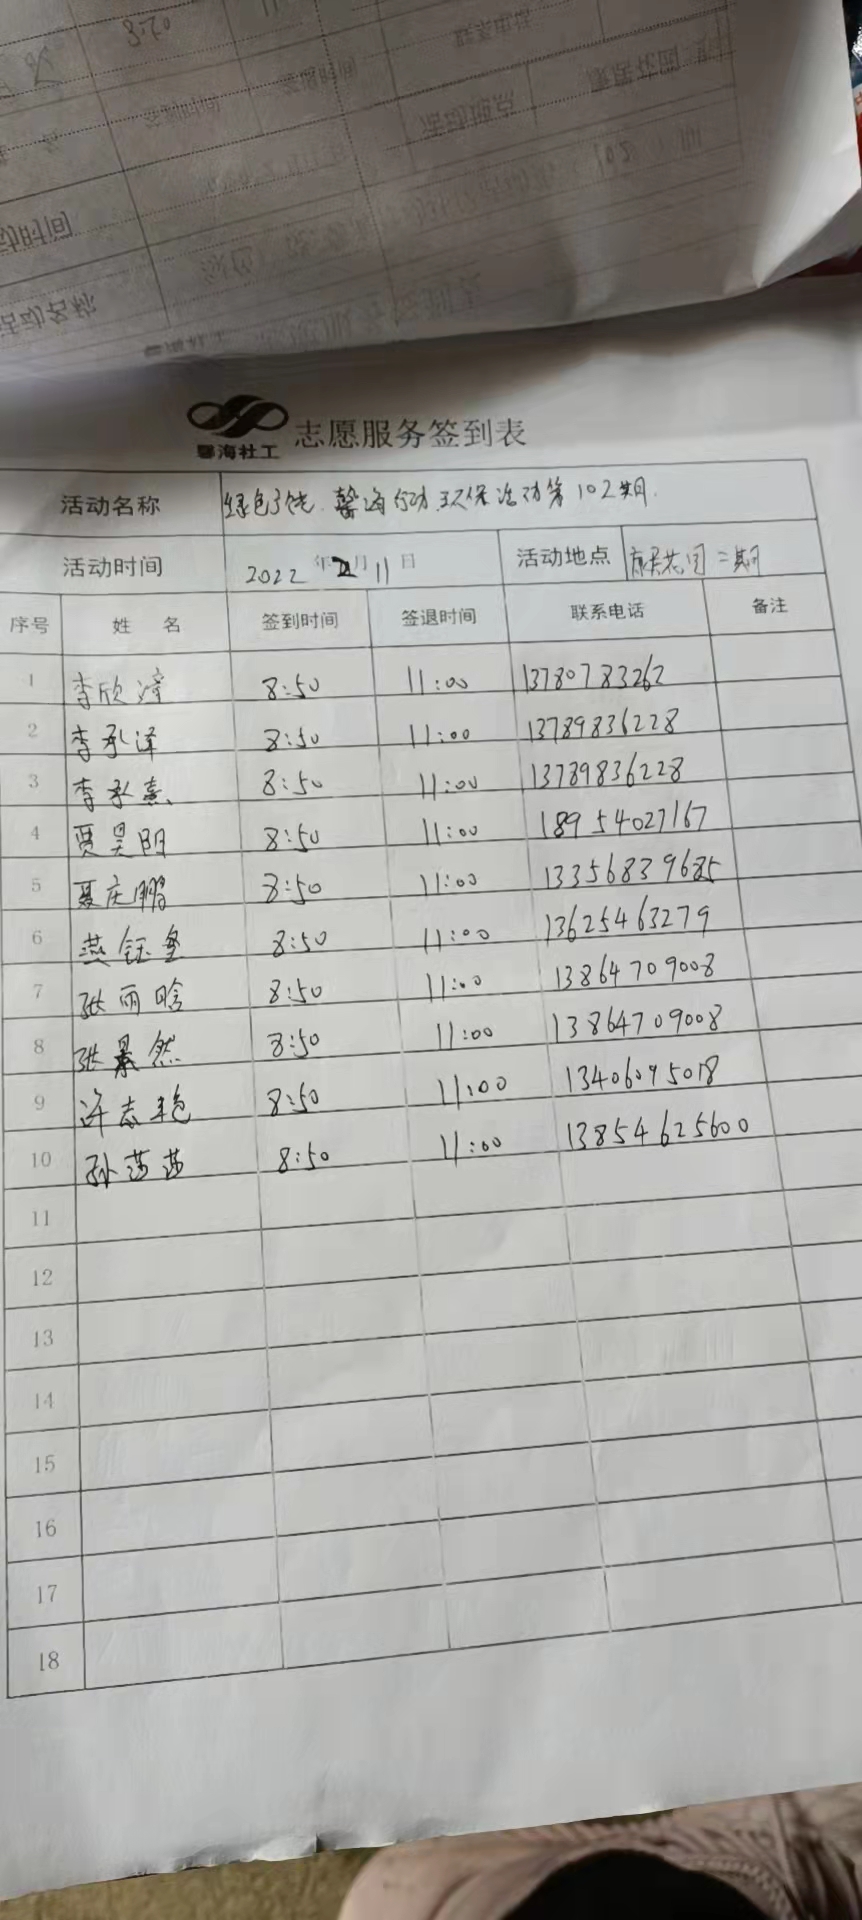 8:20
动时间
活动名称
馨海社工 志愿服务签到表
活动名称 绿色 馨海行动 环保活动第102期
活动时间 2022年 月11日 活动地点 康居花园二期
序号 姓 名 签到时间 签退时间 联系电话 备注
1 李欣 8:50 11:00 13780783262
2 李承泽 8:50 11:00 13789836228
3 李承熹 8:50 11:00 13789836228
4 贾昊阳 8:50 11:00 18954027167
5 聂庆鹏 8:50 11:00 13356839685
6 燕钰 8:50 11:00 13625463279
7 张雨晗 8:50 11:00 13864709008
8 张景然 8:50 11:00 13864709008
9 许志艳 8:50 11:00 13406095018
10 孙莎莎 8:50 11:00 13854625600
11
12
13
14
15
16
17
18